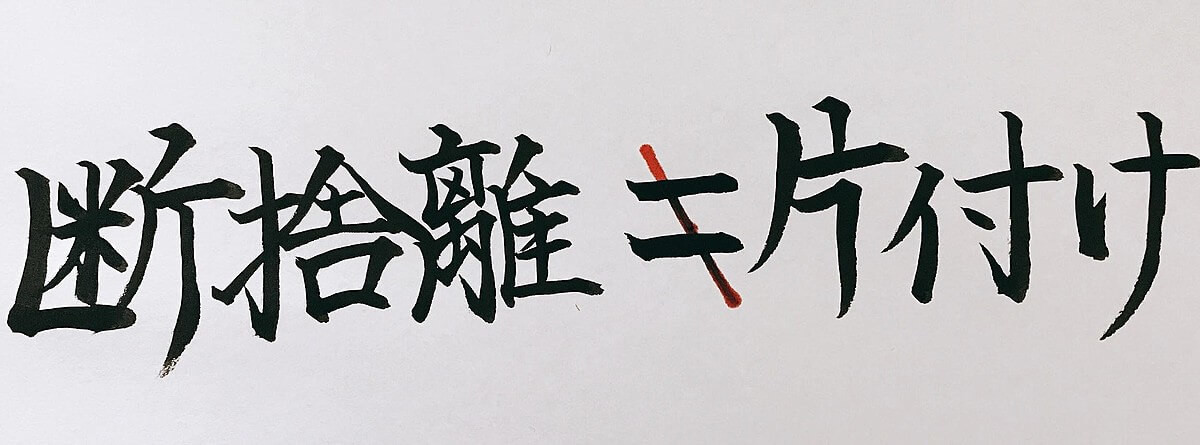 断捨離≠片付け